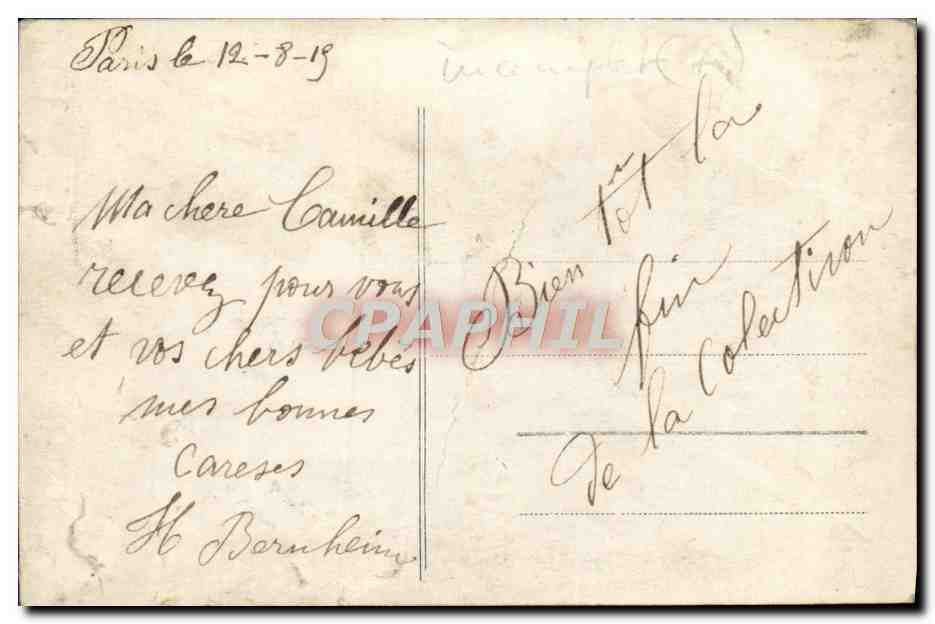 Paris le 12-8-19
Ma chere Camille
recevez pour vous
et vos chers bébés
mes bonnes
Careses
H Bernheim
Bien tôt la
fin
de la Colectison
CPAPHIL